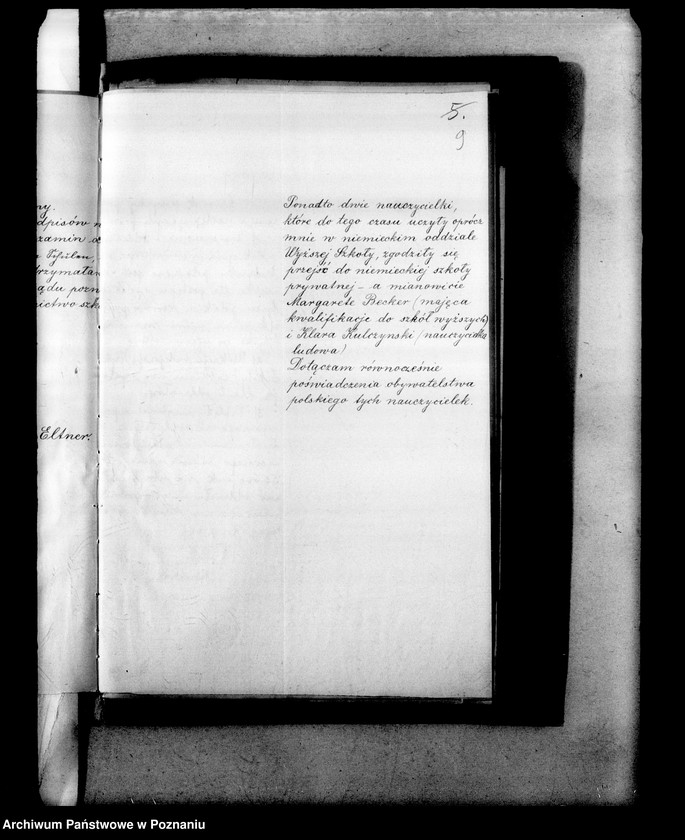 5.
9
ny.
dpisów n
zamin
Schulen,
trzymała
ądu pozn
nictwo szk
Eltner.
Ponadto dwie nauczycielki,
które do tego czasu uczyły oprócz
mnie w niemieckim oddziale
Wyższej Szkoły, zgodziły się
przejść do niemieckiej szkoły
prywatnej – a mianowicie
Margarete Becker (mająca
kwalifikacje do szkół wyższych)
i Klara Kulczynski (nauczycielka
ludowa)
Dołączam równocześnie
poświadczenia obywatelstwa
polskiego tych nauczycielek.
Archiwum Państwowe w Poznaniu